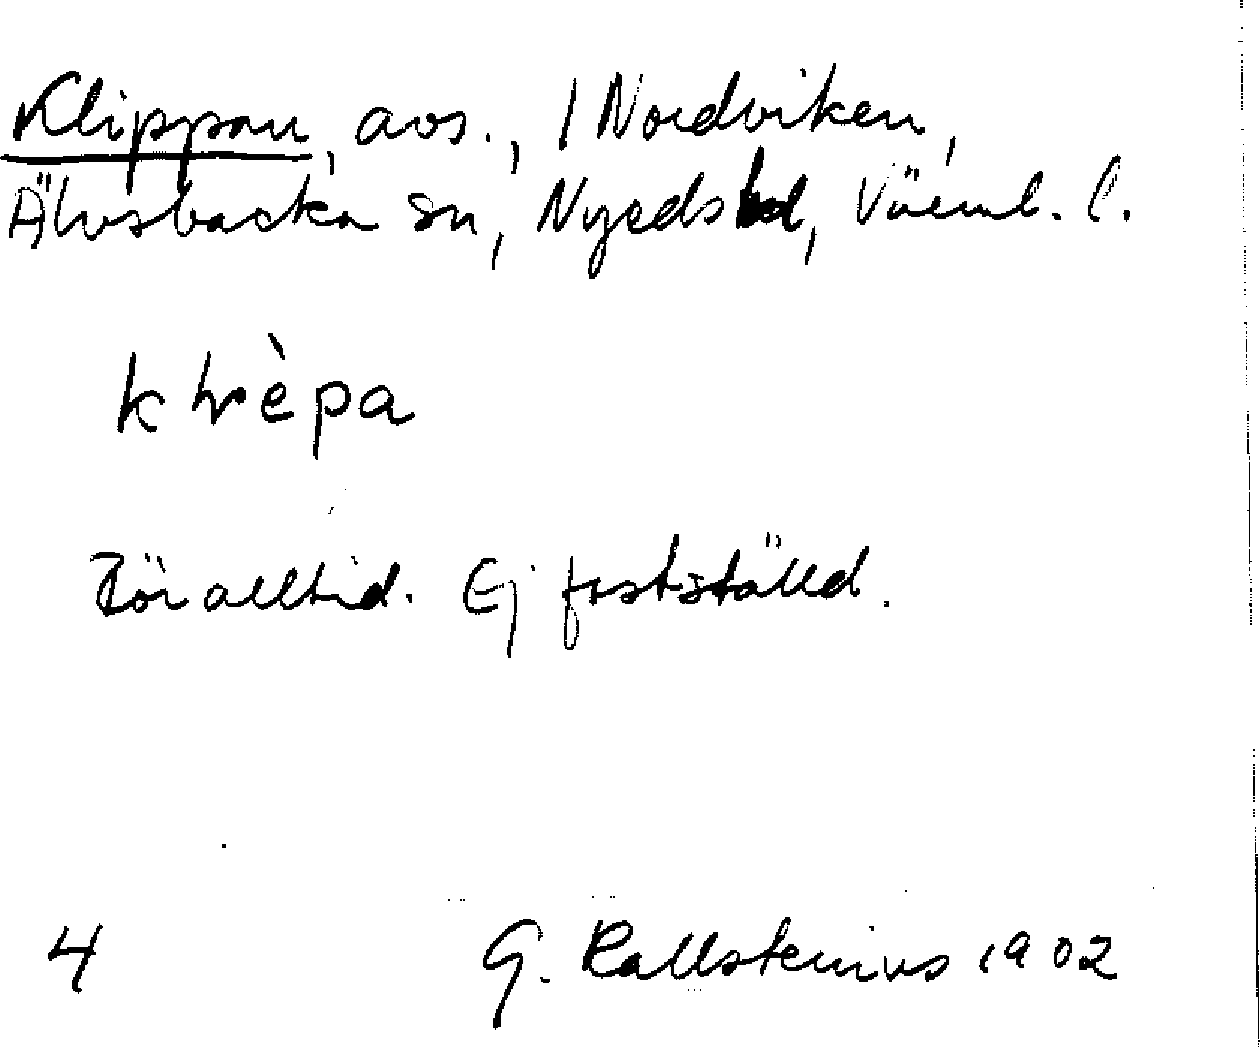 Klippan, avs., 1 Nordviken,
Älvsbacka sn, Nyeds hd, Värml. l.
klrèpa
För alltid. Ej fastställd.
4 G. Kallstenius 1902